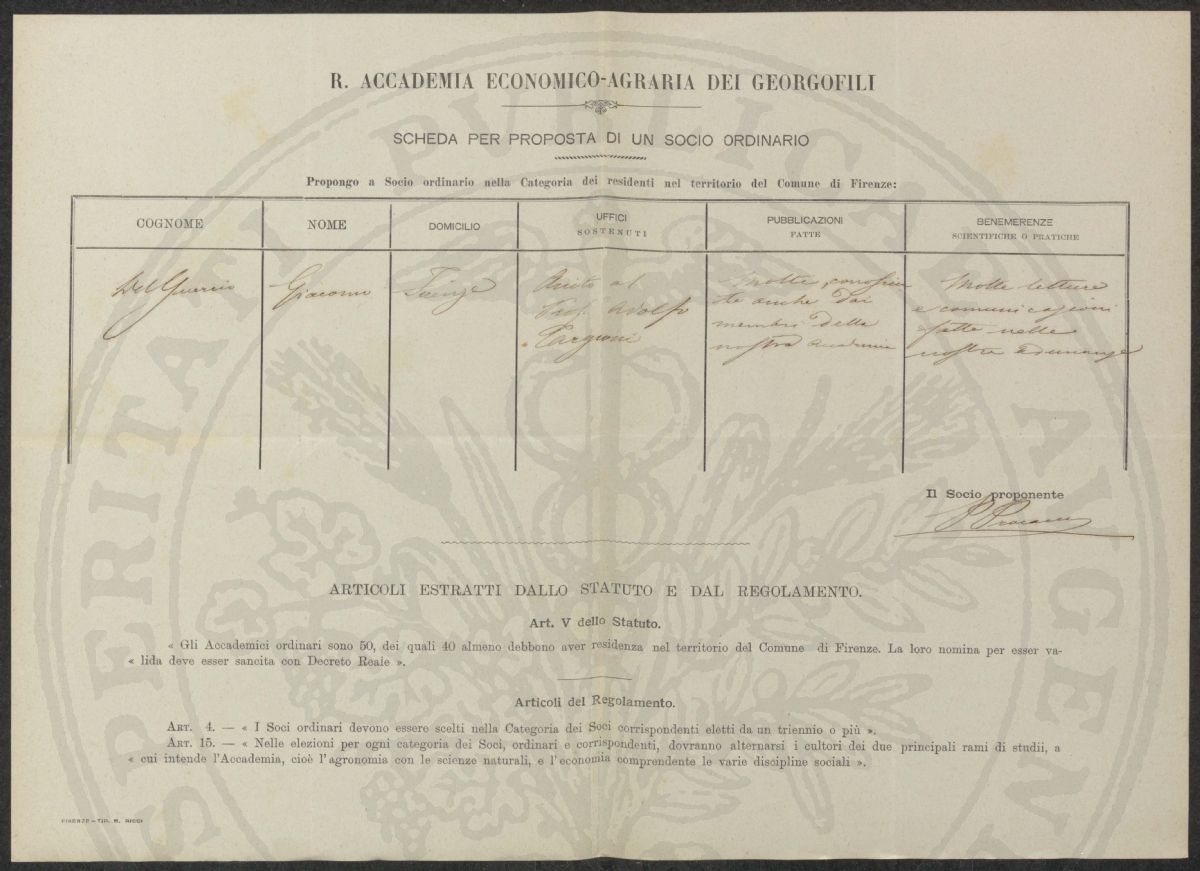 R. ACCADEMIA ECONOMICO-AGRARIA DEI GEORGOFILI
SCHEDA PER PROPOSTA DI UN SOCIO ORDINARIO
Propongo a Socio ordinario nella Categoria dei residenti nel territorio del Comune di Firenze:
COGNOME
NOME
DOMICILIO
UFFICI
SOSTENUTI
PUBBLICAZIONI
FATTE
BENEMERENZE
SCIENTIFICHE O PRATICHE
Del Guercio
Giacomo
Firenze
al
Prof. Adolfo
Targioni
Molte, conosciu
te anche dai
membri della
nostra Accademia
Molte letture
e comunicazioni
fatte nelle
nostre adunanze
Il Socio proponente
ARTICOLI ESTRATTI DALLO STATUTO E DAL REGOLAMENTO.
Art. V dello Statuto.
« Gli Accademici ordinari sono 50, dei quali 40 almeno debbono aver residenza nel territorio del Comune di Firenze. La loro nomina per esser va-
« lida deve esser sancita con Decreto Reale ».
Articoli del Regolamento.
ART. 4. — « I Soci ordinari devono essere scelti nella Categoria dei Soci corrispondenti eletti da un triennio o più ».
ART. 15. — « Nelle elezioni per ogni categoria dei Soci, ordinari e corrispondenti, dovranno alternarsi i cultori dei due principali rami di studii, a
« cui intende l'Accademia, cioè l'agronomia con le scienze naturali, e l'economia comprendente le varie discipline sociali ».
FIRENZE – TIP. M. RICCI
PROSPERITATI PUBLICAE AVGENDAE